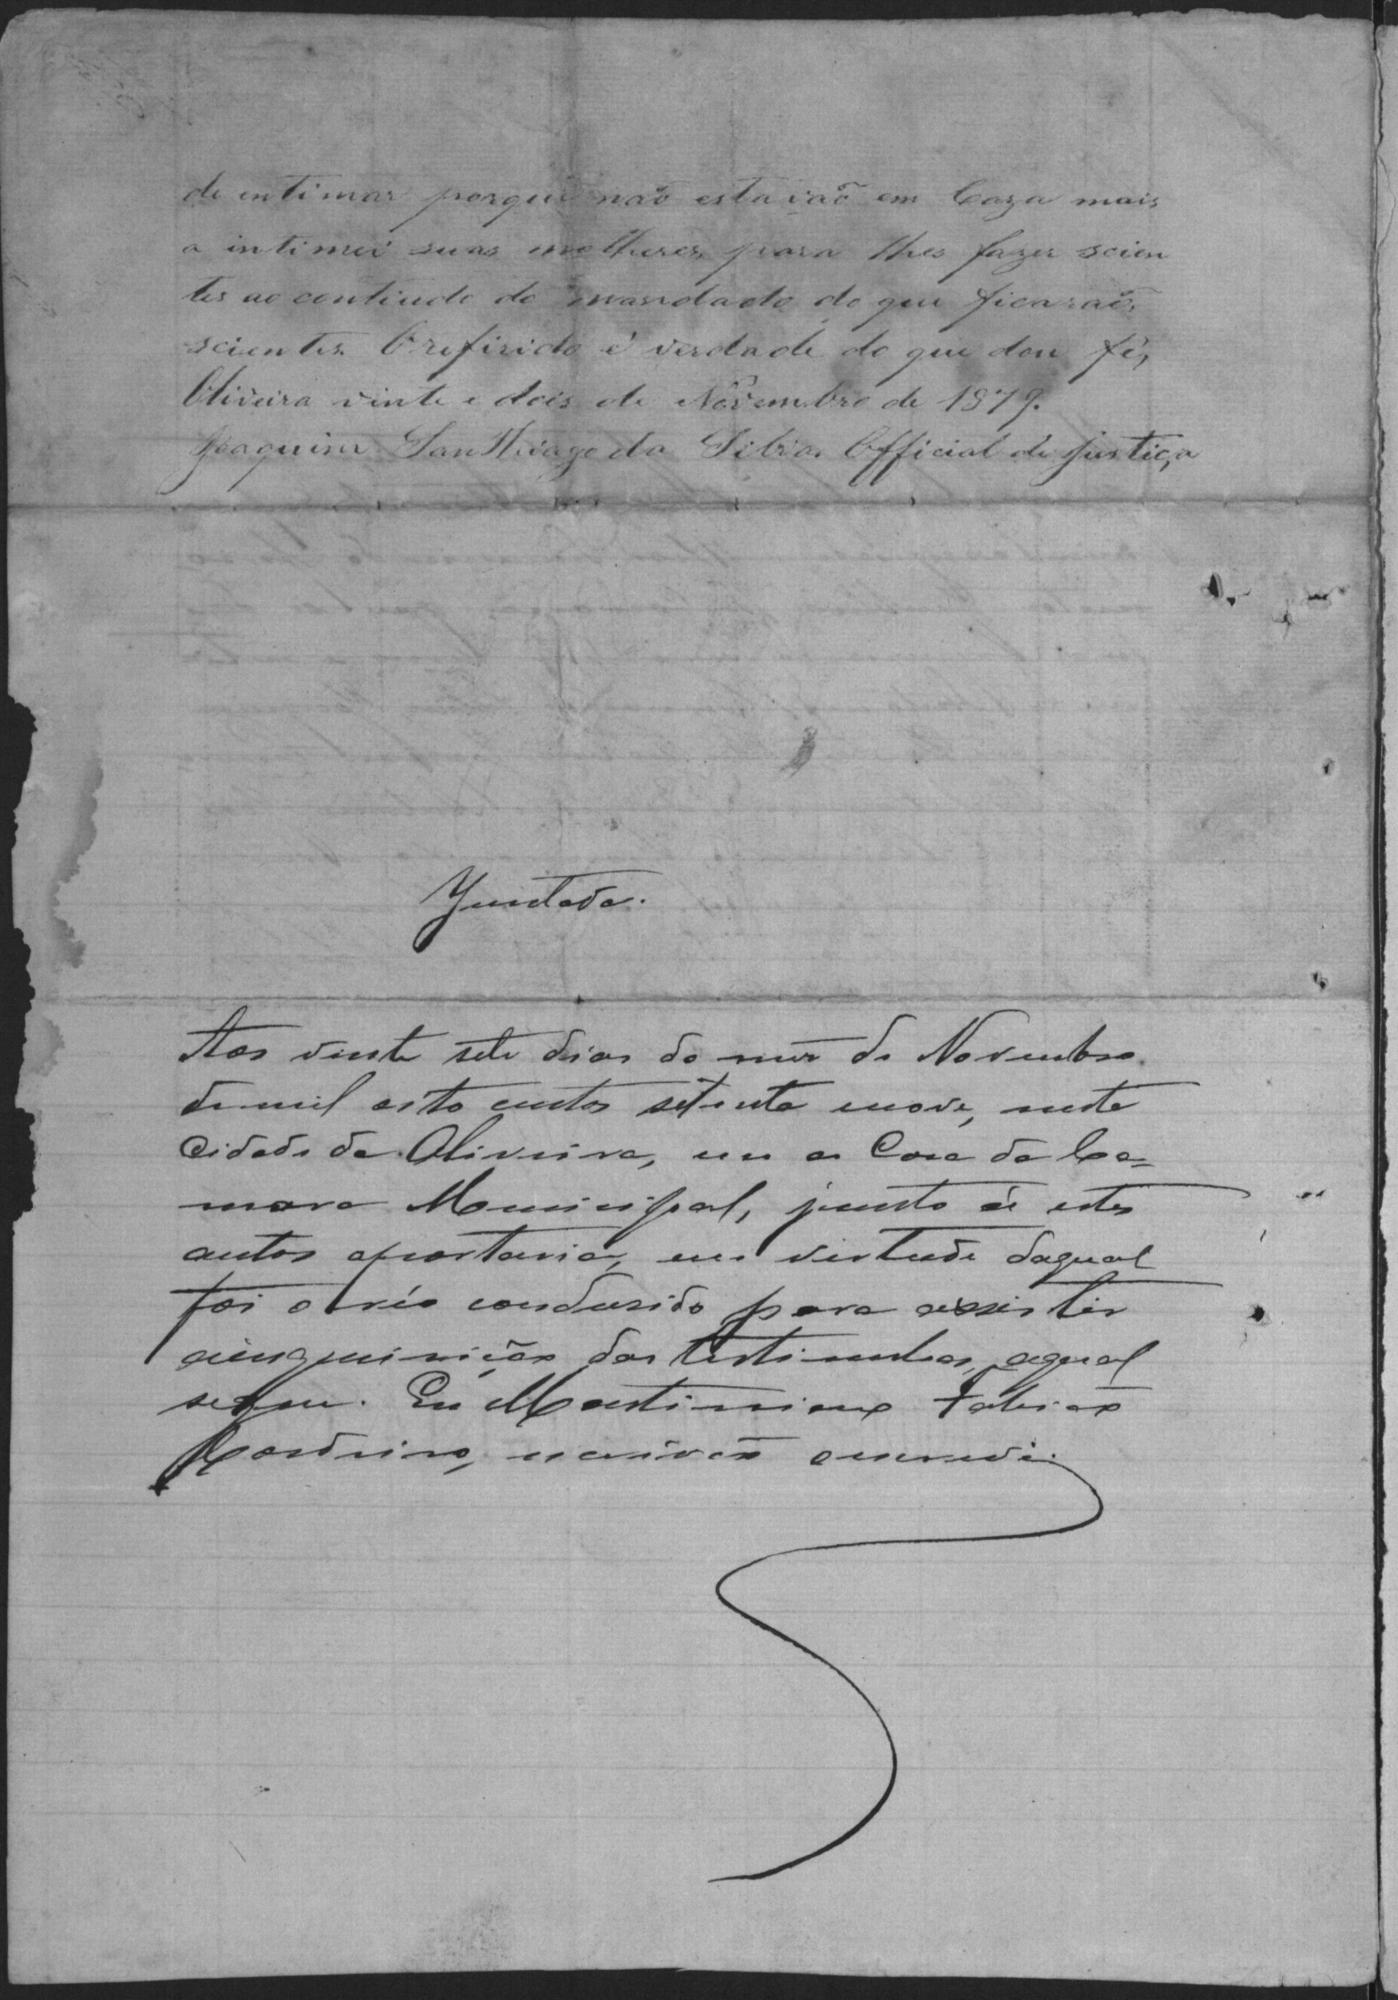 de entimar porque não estavaõ em Caza mais
a intimei suas molheres para lhes fazer scien
tes ao contiudo do mandado do que ficaraõ,
scientes. O refirido é verdade do que dou fé,
Oliveira vinte e dois de Novembro de 1879.
Joaquim San Thiago da Silva. Official de Justiça
Juntada.
Aos vinte sete dias do mez de Novembro
de mil oito centos setenta enove, nesta
Cidade de Oliveira, em a Casa da Ca-
mara Municipal, junto á estes
autos aportaria, em virtude daqual
foi o réo condusido para assistir
ainquirição das testimunhas, aqual
segue. Eu Martiniano
escrivão oescrevi.